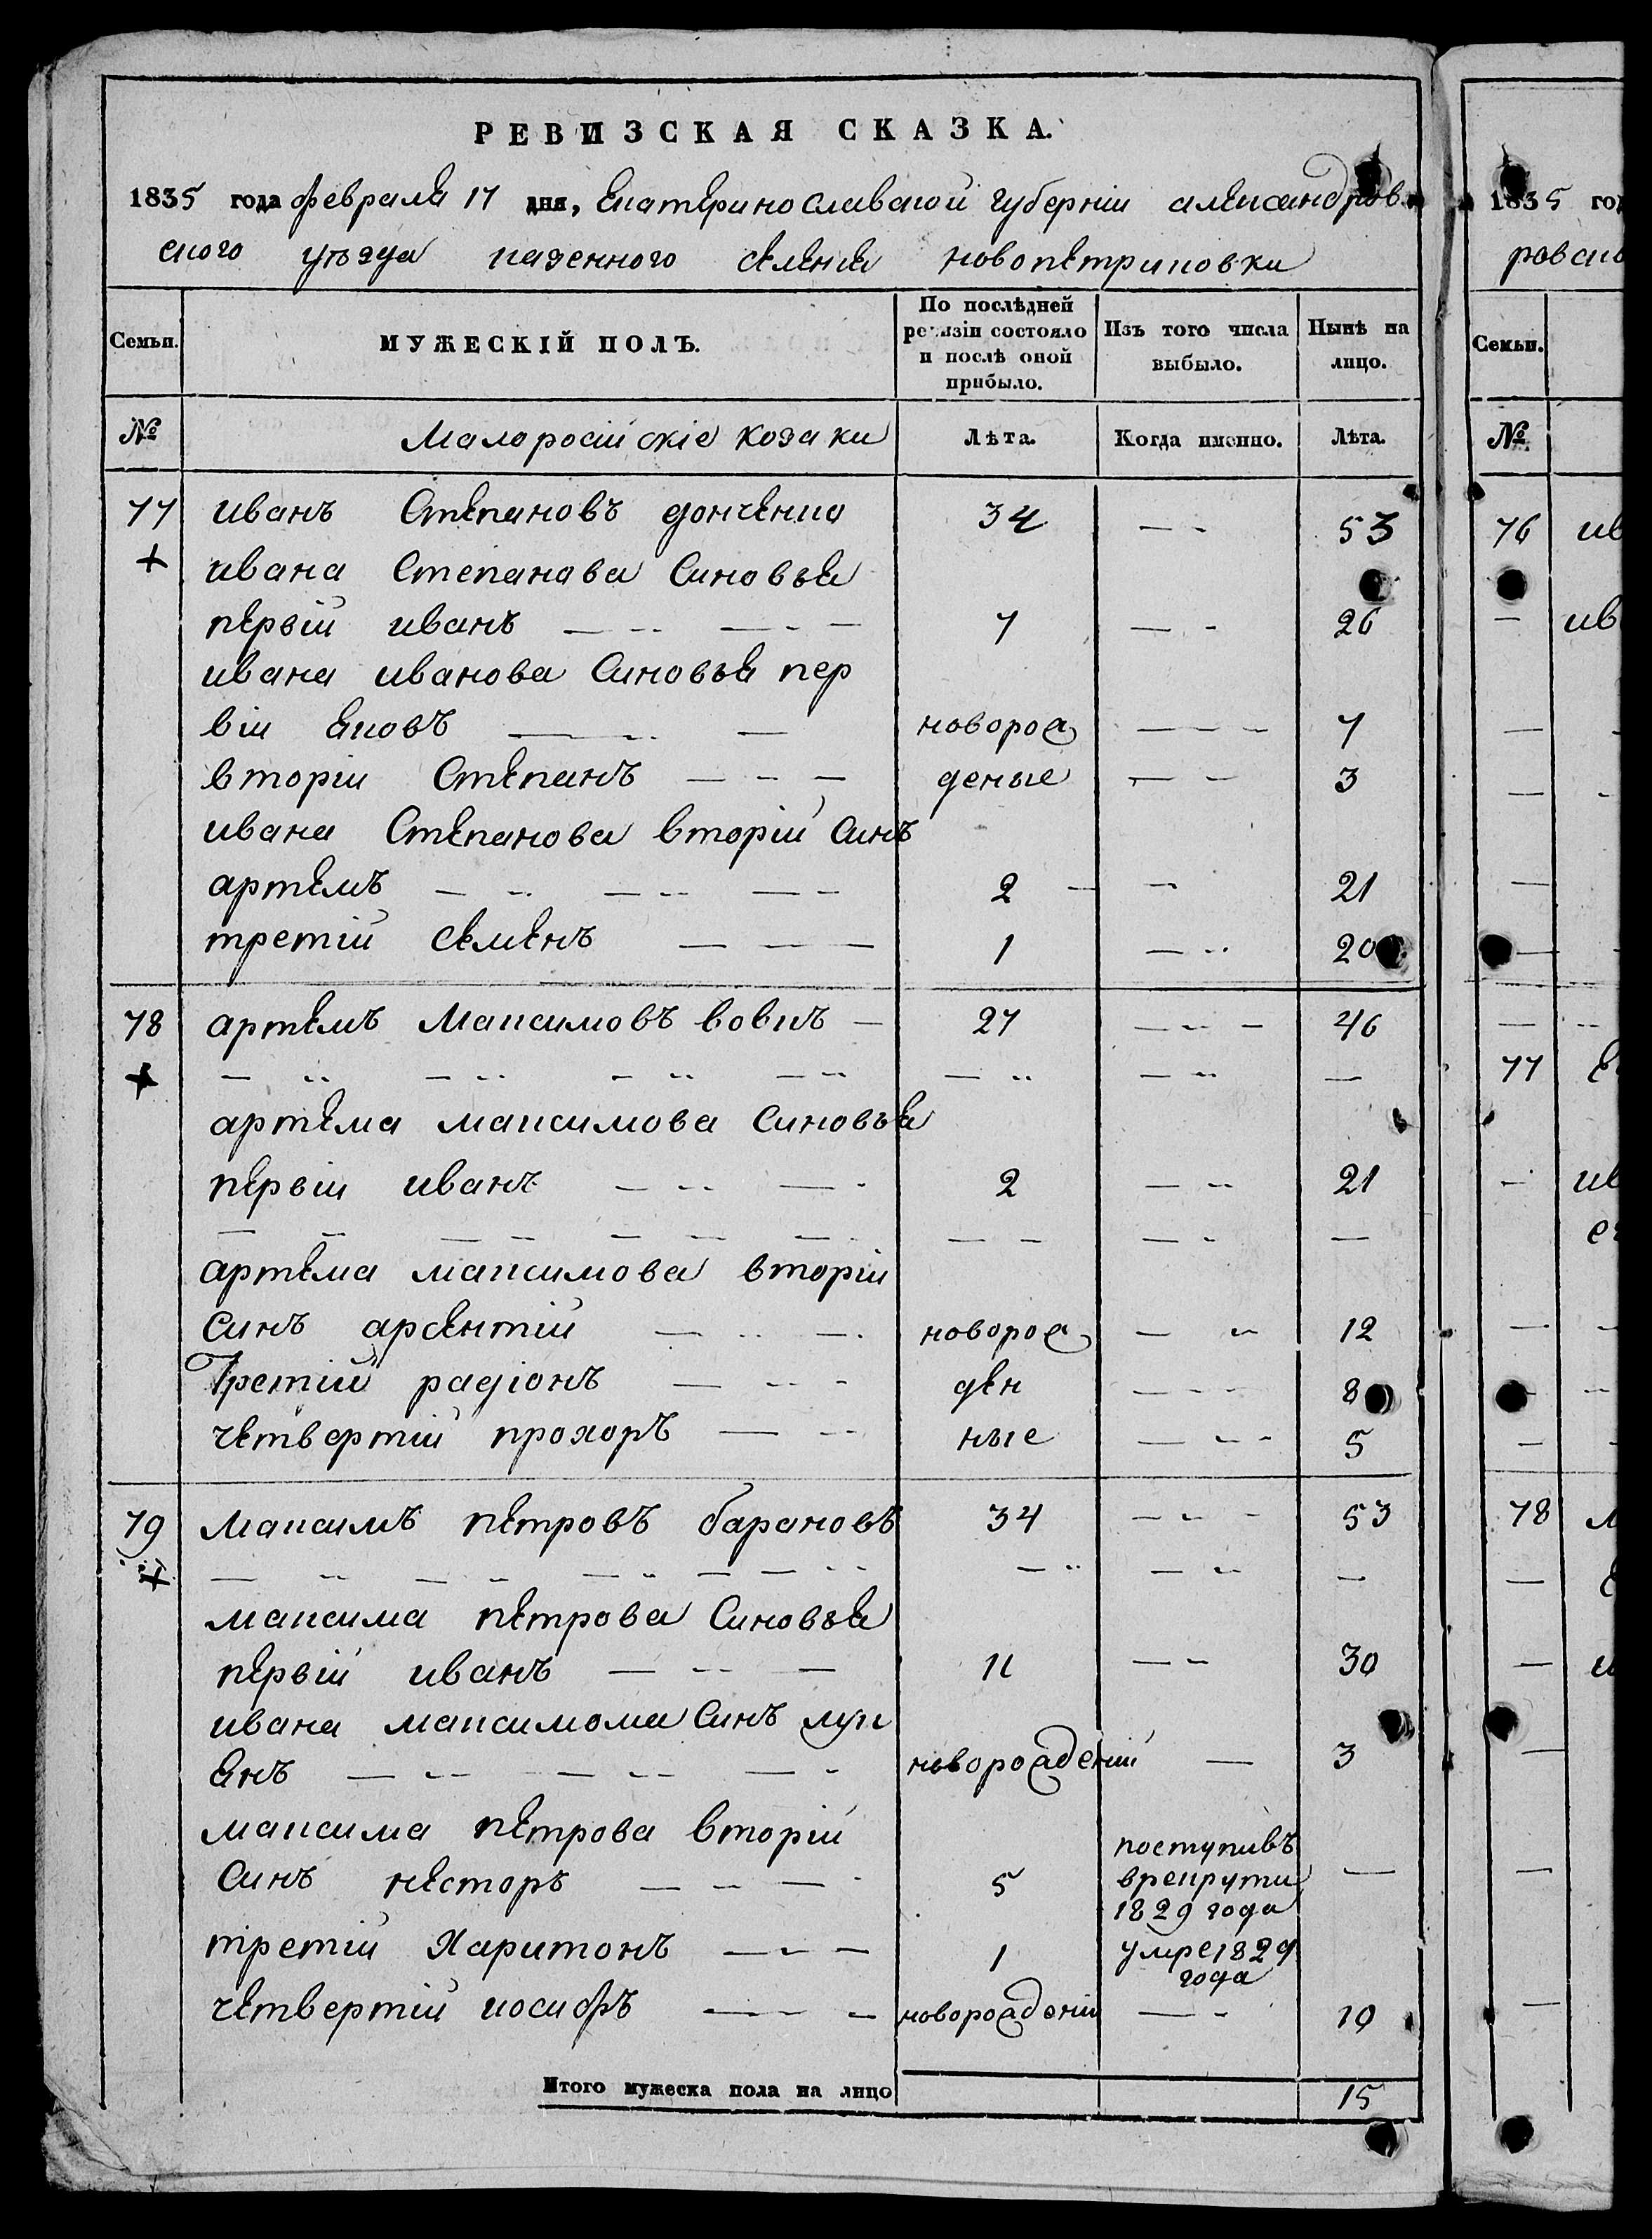 РЕВИЗСКАЯ СКАЗКА.
1835 года февраля 17 дня, Екатеринославской губерніи александров
ского уѣзда казенного селения новопетриковки
Семьи. МУЖЕСКІЙ ПОЛЪ. По послѣдней ревизіи состояло и послѣ оной прибыло. Изъ того числа выбыло. Нынѣ на лицо.
№ Малоросійскіе козаки Лѣта. Когда именно. Лѣта.
77 иванъ Степановъ донченко 34 53
ивана Степанова Синовья
первій иванъ 7 26
ивана иванова Синовья пер
вій яковъ новорож 7
вторіи Степанъ деные 3
ивана Степанова вторій Синъ
артемъ 2 21
третій семенъ 1 20
78 артемъ Максимовъ вовкъ 27 46
артема максимова Синовья
первіи иванъ 2 21
артема максимова вторіи
Синъ арсентій новорож 12
Третій радіонъ ден 8
четвертій прохоръ ные 5
79 Максимъ петровъ барановъ 34 53
максима петрова Синовья
первій иванъ 11 30
ивана максимома Синъ лук
янъ новорожденій 3
максима петрова вторій
Синъ несторъ 5 поступивъ
врекрути
1829 года
третіи Харитонъ 1 умре 1829
года
четвертій иосифъ новорожденіи 10
Итого мужеска пола на лицо 15
1835 год
ровско
Семьи.
№
76 ив
ив
77
ив
78